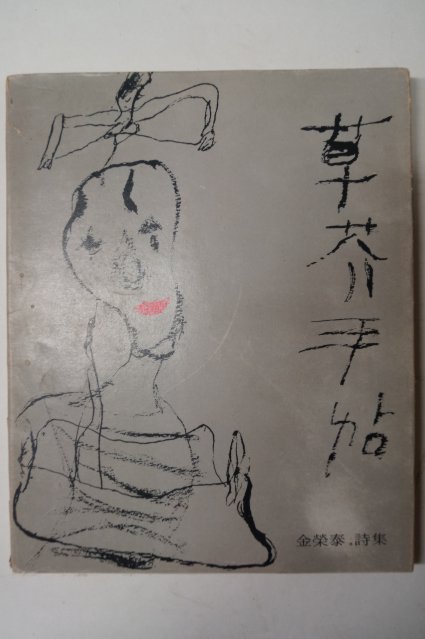 草芥手帖
金榮泰.詩集